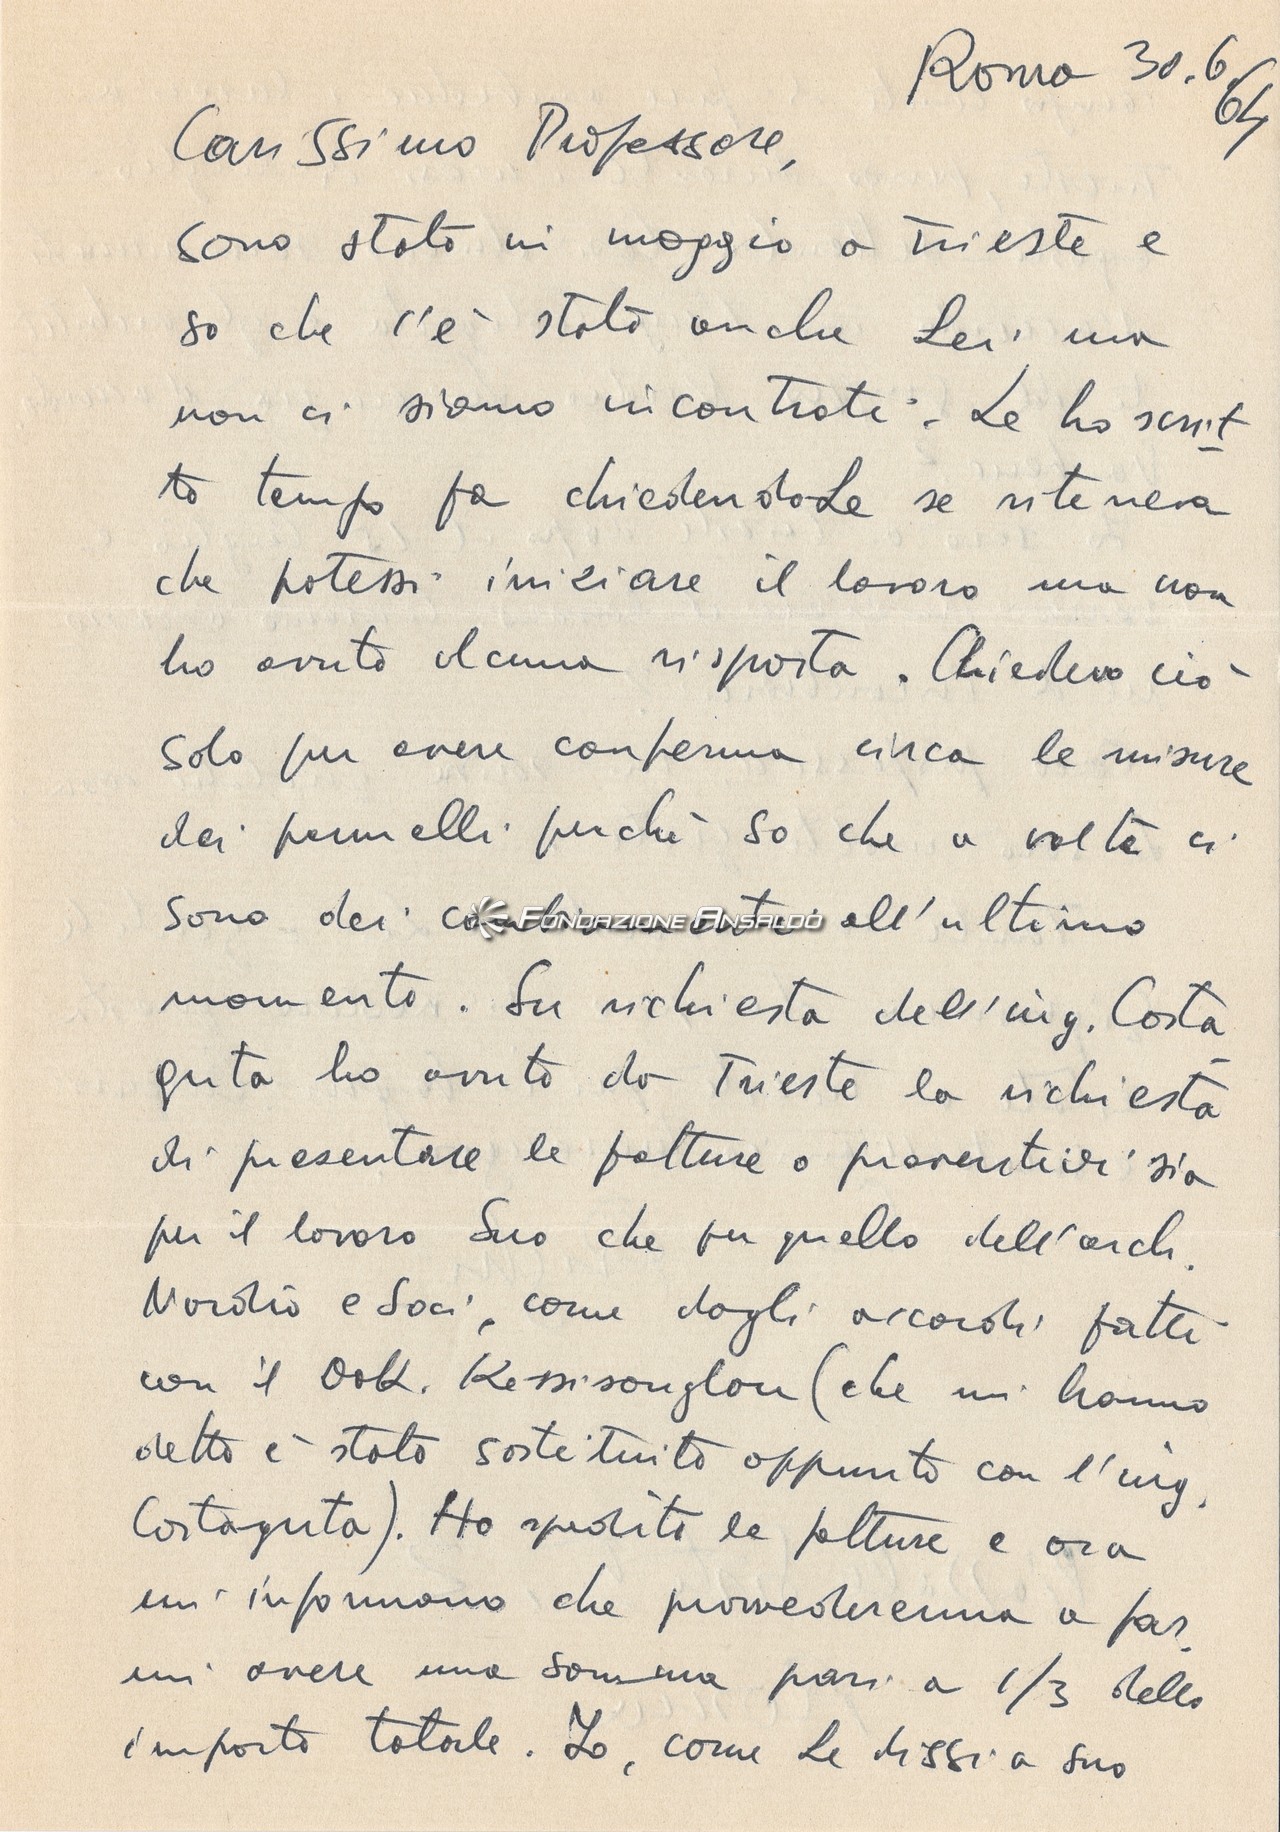 Roma 30.6.64
Carissimo Professore,
sono stato in maggio a Trieste e
so che c'è stato anche Lei ma
non ci siamo incontrati. Le ho scrit-
to tempo fa chiedendoLe se riteneva
che potessi iniziare il lavoro ma non
ho avuto alcuna risposta. Chiedevo ciò
solo per avere conferma circa le misure
dei pannelli perché so che a volte ci
sono dei cambiamenti all'ultimo
FONDAZIONE ANSALDO
momento. Su richiesta dell'ing. Costa-
guta ho avuto da Trieste la richiesta
di presentare le fatture o preventivi sia
per il lavoro Suo che per quello dell'arch.
Nordio e Soci, come dagli accordi fatti
con il Dott. Kessissouglou (che mi hanno
detto è stato sostituito appunto con l'ing.
Costaguta). Ho spedito le fatture e ora
mi informano che provvederanno a far-
mi avere una somma pari a 1/3 dello
importo totale. Io, come Le dissi a suo